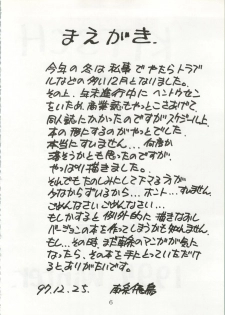 まえがき.
今年の冬は私事でやたらトラブ
ルなどの多い12月となりました。
その上、年末進行中にヘントウセン
をいため、商業誌もやっとこさあげて、
同人誌にかかったのですがスケジュール上
本の形にするのがやっとでした。
本当にすいません…。何度か
落そうかとも思ったのですが、
やっぱり描きました。
それでもたのしみにして下さる方が
少なからずいるから…。ホント…すいません。
ごめんなさいごめんなさい…。
もしかすると例外的に描きなおし
バージョンの本を作ってしまうかも知れませ
ん。もし…その時、まだ のマンガが気に
なったら、その本を手にとっていただけ
るとありがたいです。
97.12.25.
6